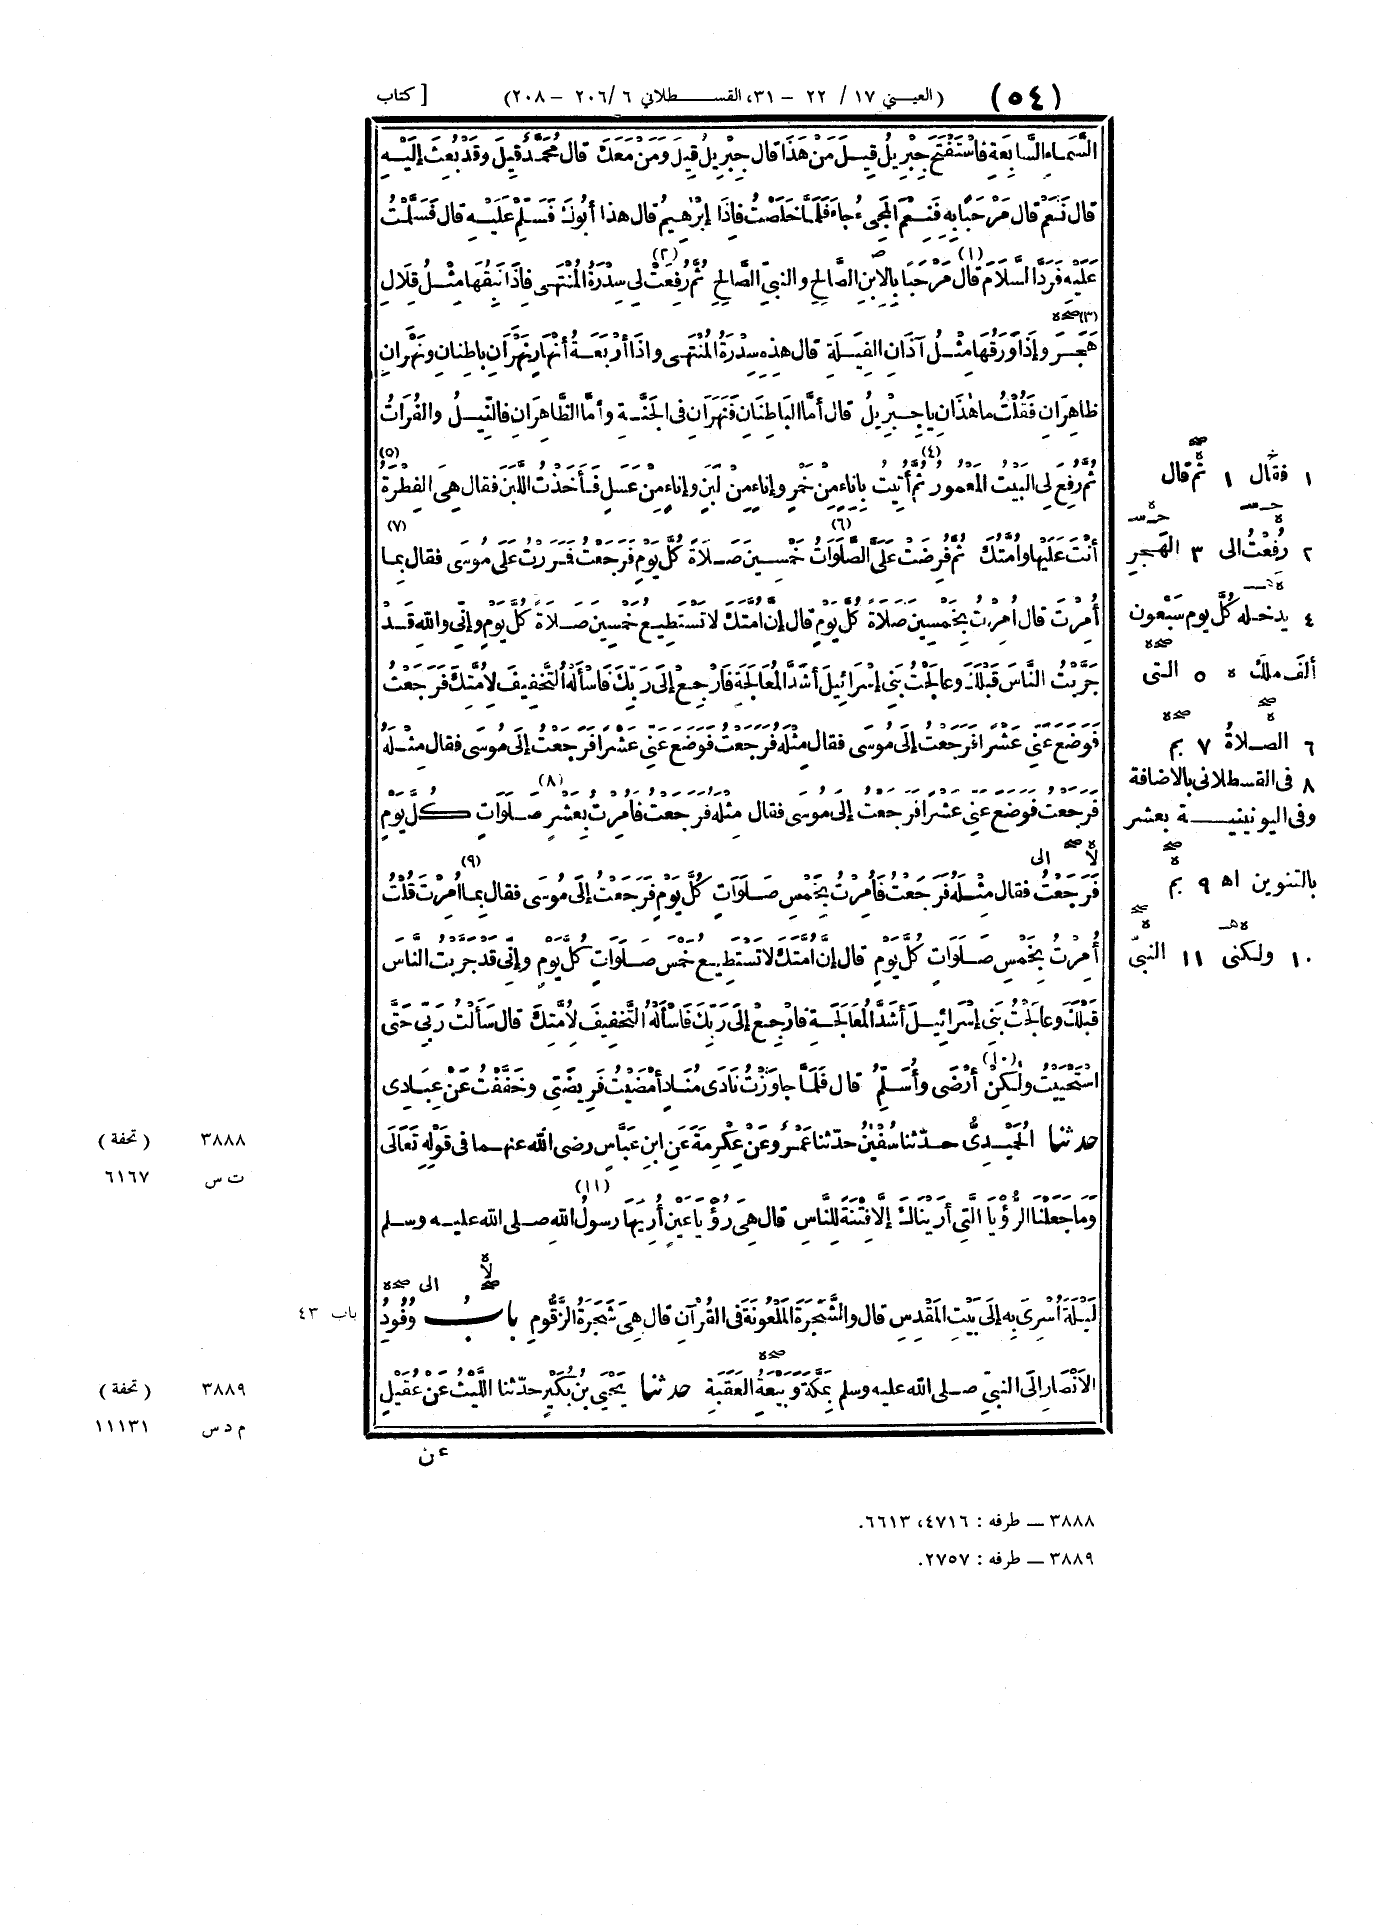 (٥٤) (العيني ١٧/ ٢٢ - ٣١، القسطلاني ٦/٢٠٦ - ٢٠٨) [ كتاب
السَّمَاءِ السَّابِعَةِ فَاسْتَفْتَحَ جِبْرِيلُ قِيلَ مَنْ هَذَا قال جِبْرِيلُ قِيلَ وَمَنْ مَعَكَ قال مُحَمَّدٌ قِيلَ وقَدْ بُعِثَ إلَيْهِ
قال نَعَمْ قال مَرْحَبًا بِهِ فَنِعْمَ المَجِيءُ جاءَ فَلَمَّا خَلَصْتُ فإذَا إبْرٰهِيمُ قال هذا أبُوكَ فَسَلِّمْ عَلَيْهِ قال فَسَلَّمْتُ
عَلَيْهِ فَرَدَّ السَّلَامَ (١) قال مَرْحَبًا بِالابنِ الصَّالِحِ والنبيِّ الصَّالِحِ ثُمَّ رُفِعَتْ (٢) لِي سِدْرَةُ المُنْتَهَى فإذَا نَبِقُهَا مِثْلُ قِلَالِ
هَجَرَ (٣) وإذَا وَرَقُهَا مِثْلُ آذَانِ الفِيَلَةِ قال هذِهِ سِدْرَةُ المُنْتَهَى واذَا أرْبَعَةُ أنْهَارٍ نَهْرَانِ باطِنانِ ونَهْرانِ
ظاهِرَانِ فَقُلْتُ ما هٰذَانِ يا جِبْرِيلُ قال أمَّا البَاطِنَانِ فَنَهَرَانِ فى الجَنَّةِ وأمَّا الظَّاهِرَانِ فالنِّيلُ والفُرَاتُ
ثُمَّ رُفِعَ لِي البَيْتُ المَعْمُورُ (٤) ثُمَّ أُتِيتُ بِإناءٍ مِنْ خَمْرٍ وإناءٍ مِنْ لَبَنٍ وإناءٍ مِنْ عَسَلٍ فَأَخَذْتُ اللَّبَنَ فقال هِيَ الفِطْرَةُ (٥)
أنْتَ عَلَيْها وأُمَّتُكَ ثُمَّ فُرِضَتْ عَلَيَّ الصَّلَوَاتُ (٦) خَمْسِينَ صَلَاةً كُلَّ يَوْمٍ فَرَجَعْتُ فَمَرَرْتُ عَلَى مُوسَى فقال بِمَا (٧)
أُمِرْتَ قال أُمِرْتُ بِخَمْسِينَ صَلاةً كُلَّ يَوْمٍ قال إنَّ أُمَّتَكَ لا تَسْتَطِيعُ خَمْسِينَ صَلاةً كُلَّ يَوْمٍ وإنِّي والله قَدْ
جَرَّبْتُ النَّاسَ قَبْلَكَ وعالَجْتُ بَنِى إسْرَائِيلَ أشَدَّ المُعَالَجَةِ فارْجِعْ إلَى رَبِّكَ فَاسْأَلْهُ التَّخْفِيفَ لِأُمَّتِكَ فَرَجَعْتُ
فَوَضَعَ عَنِّي عَشْرًا فَرَجَعْتُ إلَى مُوسَى فقال مِثْلَهُ فَرَجَعْتُ فَوَضَعَ عَنِّي عَشْرًا فَرَجَعْتُ إلَى مُوسَى فقال مِثْلَهُ
فَرَجَعْتُ فَوَضَعَ عَنِّي عَشْرًا فَرَجَعْتُ إلَى مُوسَى فقال مِثْلَهُ فَرَجَعْتُ فَأُمِرْتُ بِعَشْرٍ (٨) صَلَوَاتٍ كُلَّ يَوْمٍ
فَرَجَعْتُ فقال مِثْلَهُ فَرَجَعْتُ فَأُمِرْتُ بِخَمْسِ صَلَوَاتٍ كُلَّ يَوْمٍ فَرَجَعْتُ إلَى مُوسَى فقال بِمَا (٩) أُمِرْتَ قُلْتُ
أُمِرْتُ بِخَمْسِ صَلَوَاتٍ كُلَّ يَوْمٍ قال إنَّ أُمَّتَكَ لا تَسْتَطِيعُ خَمْسَ صَلَوَاتٍ كُلَّ يَوْمٍ وإنِّي قَدْ جَرَّبْتُ النَّاسَ
قَبْلَكَ وعالَجْتُ بَنِى إسْرَائِيلَ أشَدَّ المُعَالَجَةِ فارْجِعْ إلَى رَبِّكَ فَاسْأَلْهُ التَّخْفِيفَ لِأُمَّتِكَ قال سَأَلْتُ رَبِّي حَتَّى
اسْتَحْيَيْتُ ولٰكِنْ (١٠) أرْضَى وأُسَلِّمُ قال فَلَمَّا جاوَزْتُ نَادَى مُنَادٍ أمْضَيْتُ فَرِيضَتِي وخَفَّفْتُ عَنْ عِبَادِى
حدثنا الحُمَيْدِيُّ حدّثنا سُفْيٰنُ حدّثنا عَمْرٌو عَنْ عِكْرِمَةَ عَنِ ابنِ عَبَّاسٍ رضى الله عنهما فى قَوْلِهِ تَعَالَى
وَمَا جَعَلْنَا الرُّؤْيَا الَّتِي أَرَيْنَاكَ إلَّا فِتْنَةً لِلنَّاسِ قال هِيَ رُؤْيَا عَيْنٍ أُرِيَهَا رسولُ (١١) اللهِ صلى الله عليه وسلم
لَيْلَةَ أُسْرِيَ بِهِ إلَى بَيْتِ المَقْدِسِ قال والشَّجَرَةَ المَلْعُونَةَ فى القُرْآنِ قال هِيَ شَجَرَةُ الزَّقُّومِ بابُ وُفُودُ
الأَنْصَارِ إلَى النبيِّ صلى الله عليه وسلم بِمَكَّةَ وبَيْعَةُ العَقَبَةِ حدثنا يَحْيَى بنُ بُكَيْرٍ حدّثنا اللَّيْثُ عَنْ عُقَيْلٍ
١ فقال ١ ثم قال
٢ رُفِعْتُ الى ٣ الهَجَرِ
٤ يدخله كُلَّ يوم سَبْعون
ألفَ ملك ٥ التى
٦ الصلاةُ ٧ بم
٨ فى القسطلانى بالاضافة
وفى اليونينية بعشر
بالتنوين اه ٩ بم
١٠ ولكنى ١١ النبيّ
٣٨٨٨ (تحفة)
ت س ٦١٦٧
باب ٤٣
٣٨٨٩ (تحفة)
م د س ١١١٣١
٣٨٨٨ — طرفه : ٤٧١٦، ٦٦١٣.
٣٨٨٩ — طرفه : ٢٧٥٧.